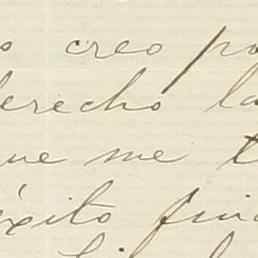 creo po
derecho la
que me t
éxito fin